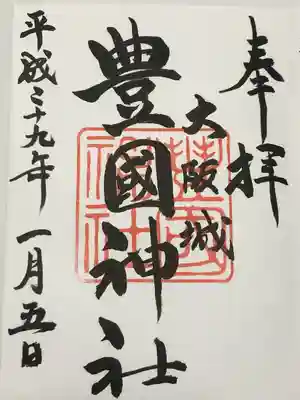 奉拝
大阪城
豊國神社
平成二十九年一月五日
豊國
神社